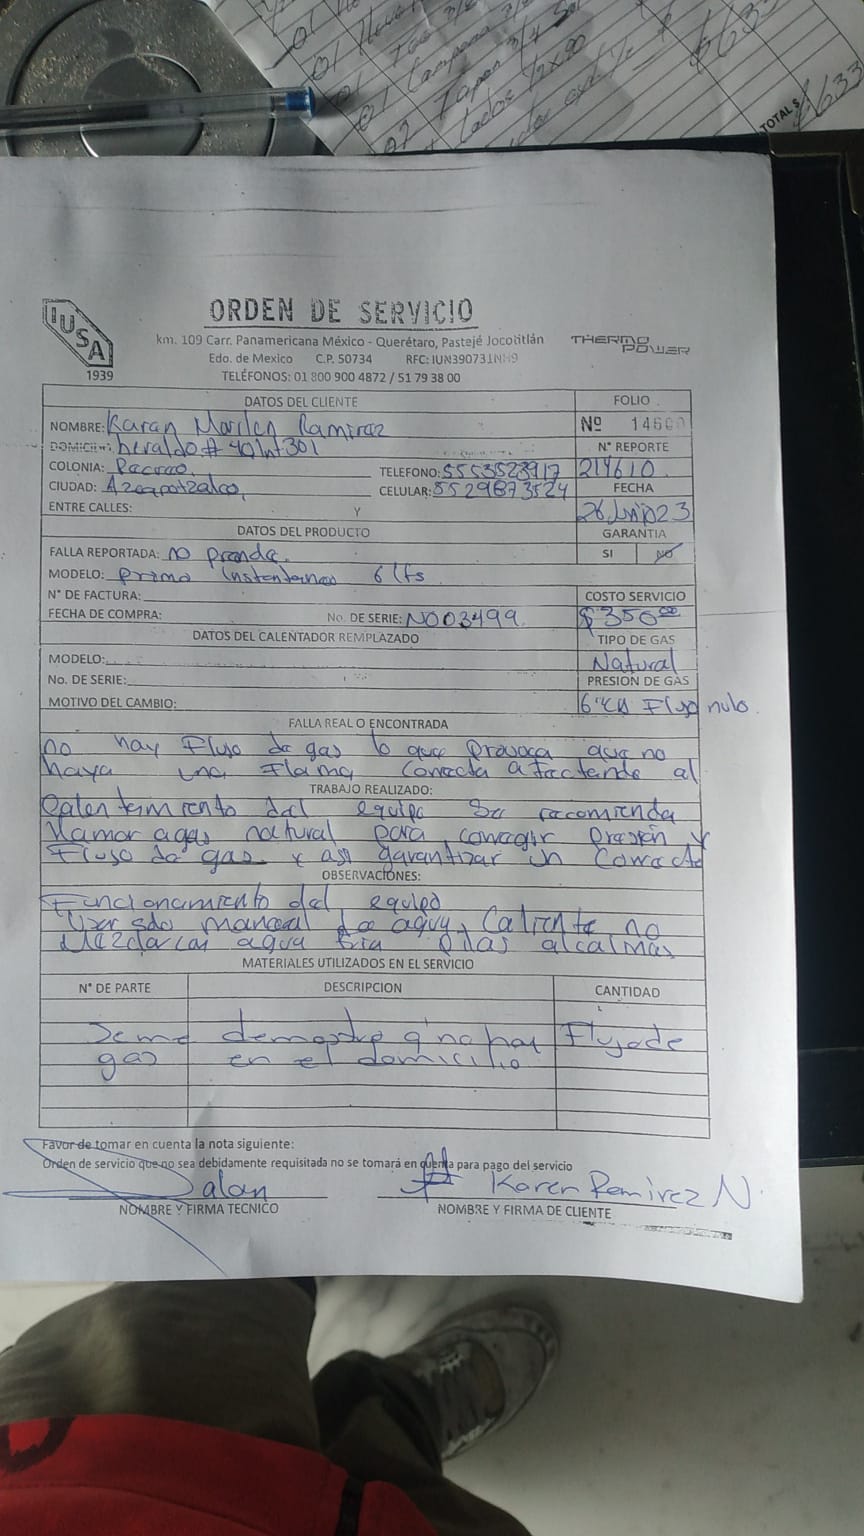 TOTAL $
633
IUSA
1939
ORDEN DE SERVICIO
km. 109 Carr. Panamericana México - Querétaro, Pastejé Jocotitlán
Edo. de Mexico C.P. 50734 RFC: IUN390731NH9
TELÉFONOS: 01 800 900 4872 / 51 79 38 00
THERMO POWER
DATOS DEL CLIENTE
FOLIO
NOMBRE: Karen Marilen Ramirez
Nº 1466
DOMICILIO: heraldo # 40 Int 301
N° REPORTE
COLONIA: TELEFONO: 5553523917 214610
CIUDAD: Azcapotzalco, CELULAR: 5529873524
FECHA
ENTRE CALLES: Y
26 Jun 23
DATOS DEL PRODUCTO
GARANTIA
FALLA REPORTADA: no prende.
SI NO
MODELO: primo instantaneo 6 lts
N° DE FACTURA:
COSTO SERVICIO
FECHA DE COMPRA: No. DE SERIE: N003499
$350.00
DATOS DEL CALENTADOR REMPLAZADO
TIPO DE GAS
MODELO:
Natural
No. DE SERIE:
PRESION DE GAS
MOTIVO DEL CAMBIO:
Flujo nulo.
FALLA REAL O ENCONTRADA
no hay Flujo de gas lo que provoca que no
haya una Flama correcta afectando al
TRABAJO REALIZADO:
Calentamiento del equipo Se recomienda
llamar a gas natural para corregir presión y
Flujo de gas y asi garantizar un correcto
OBSERVACIONES:
Funcionamiento del equipo
Usar solo maneral de agua Caliente no
Mezclar con agua fria Pilas alcalinas
MATERIALES UTILIZADOS EN EL SERVICIO
N° DE PARTE DESCRIPCION CANTIDAD
Se me demostro q' no hay Flujo de
gas en el domicilio
Favor de tomar en cuenta la nota siguiente:
Orden de servicio que no sea debidamente requisitada no se tomará en cuenta para pago del servicio
Karen Ramirez N.
NOMBRE Y FIRMA TECNICO NOMBRE Y FIRMA DE CLIENTE